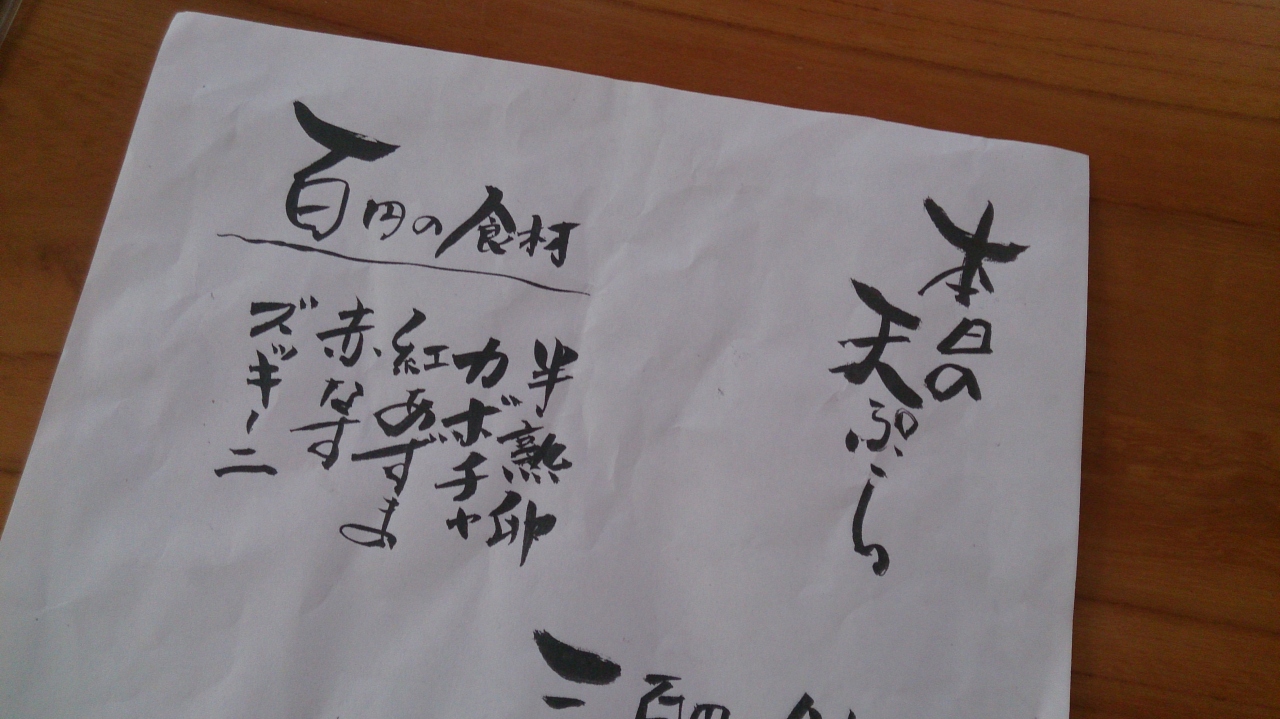 本日の
天ぷら
百円の食材
半熟卵
カボチャ
紅あずま
赤なす
ズッキーニ